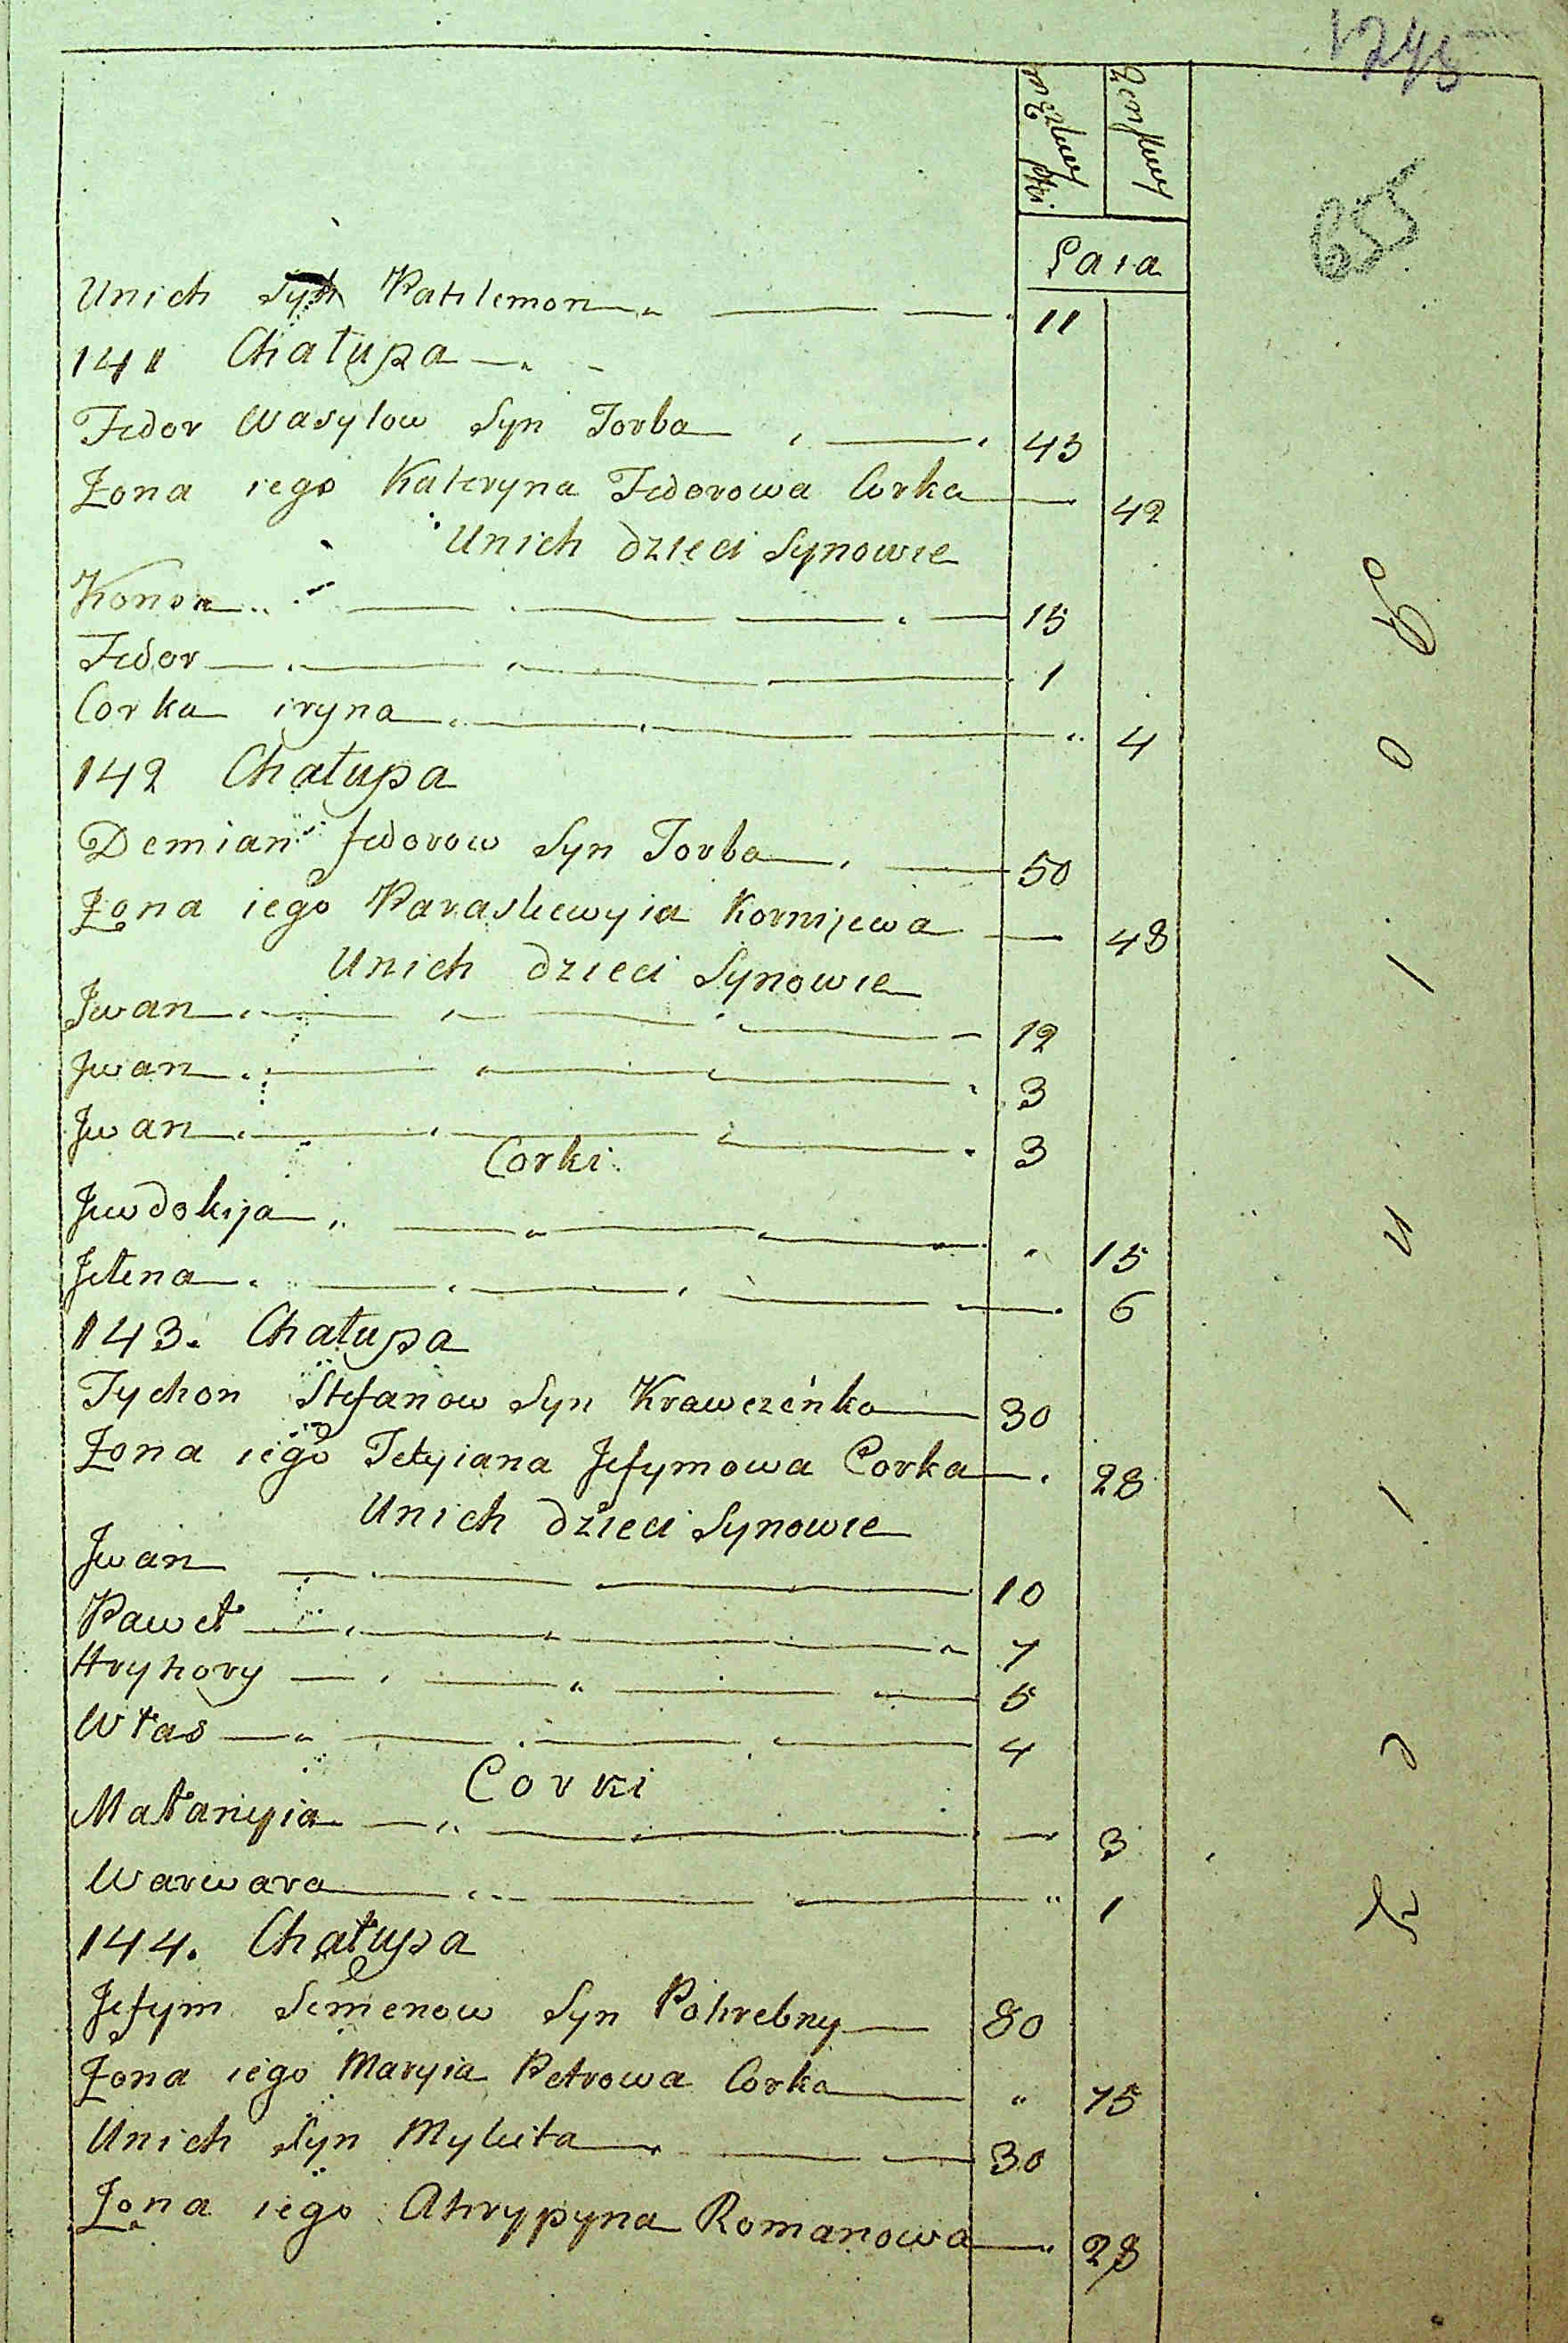 1245
655
męzkiey płci
Zenskiey
Lata
Unich Syn Pantilemon 11
141 Chałupa
Fedor Wasylow Syn Torba 43
Żona iego Kateryna Fedorowa Corka 42
Unich dzieci Synowie
Konon 15
Fedor 1
Corka iryna 4
142 Chałupa
Demian fedorow Syn Torba 50
Żona iego Paraskewyia Kornijewa 48
Unich dzieci Synowie
Jwan 12
Jwan 3
Jwan 3
Corki
Jewdokija 15
Jełena 6
143. Chałupa
Tychon Stefanow Syn Krawczeńko 30
Żona iego Tetyiana Jefymowa Corka 28
Unich dzieci Synowie
Jwan 10
Paweł 7
Hryhory 5
Włas 4
Corki
Małanyia 3
Warwara 1
144. Chałupa
Jefym Semenow Syn Pohrebny 80
Żona iego Maryia Petrowa Corka 75
Unich Syn Mykita 30
Żona iego Ahrypyna Romanowa 28